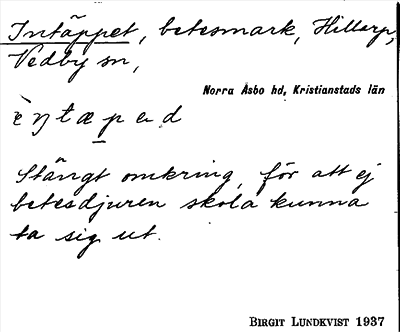 Intäppet, betesmark, Hillarp,
Vedby sn,
Norra Åsbo hd, Kristianstads län
Stängt omkring, för att ej
betesdjuren skola kunna
ta sig ut.
BIRGIT LUNDKVIST 1937